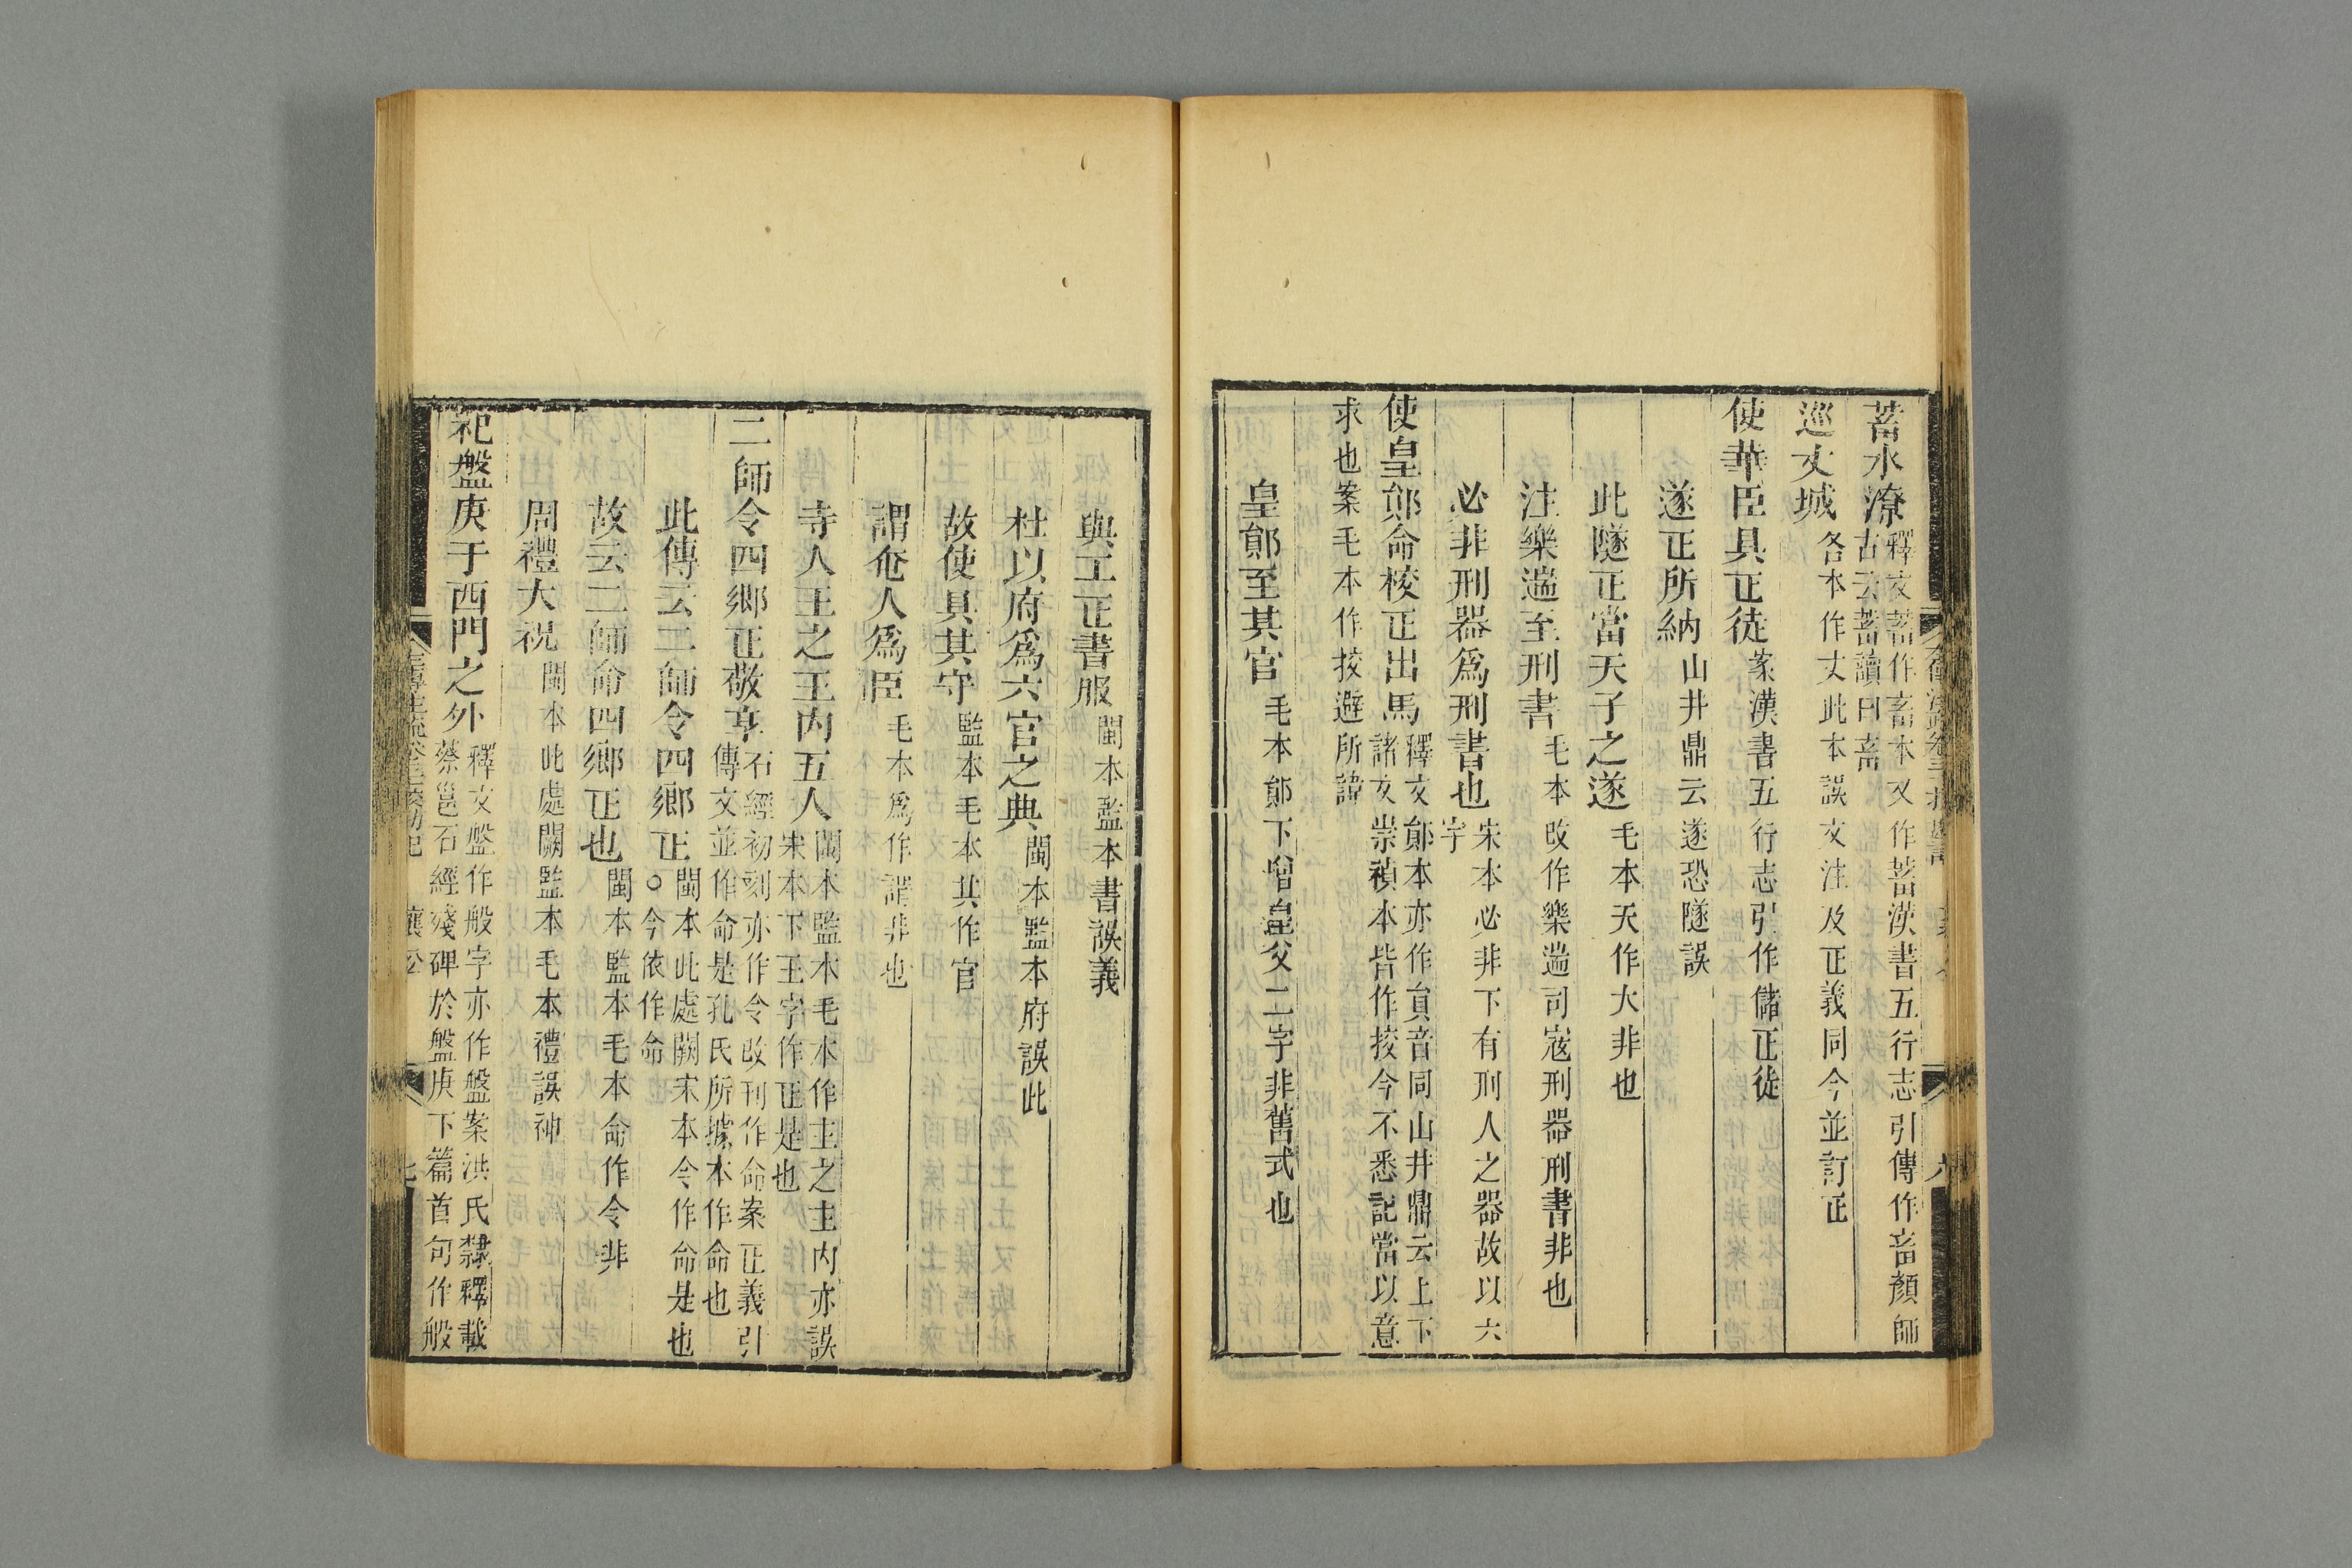 蓄水潦釋文蓄作畜本又作蓄漢書五行志引傳作畜顏師
古云蓄讀曰畜
巡丈城各本作丈此本誤文注及正義同今並訂正
使華臣具正徒案漢書五行志引作儲正徒
遂正所納山井鼎云遂恐隧誤
此隧正當天子之遂毛本天作大非也
注樂遄至刑書毛本改作樂遄司寇刑器刑書非也
必非刑器爲刑書也宋本必非下有刑人之器故以六
字
使皇鄖命校正出馬釋文鄖本亦作員音同山井鼎云上下
諸文崇禎本皆作挍今不悉記當以意
求也案毛本作挍避所諱
皇鄖至其官毛本鄖下增皇父二字非舊式也
與工正書服閩本監本書誤義
杜以府爲六官之典閩本監本府誤此
故使具其守監本毛本其作官
謂奄人爲臣毛本爲作謂非也
寺人王之王内五人閩本監本毛本作主之主内亦誤
宋本下王字作正是也
二師令四鄉正敬享石經初刻亦作令改刊作命案正義引
傳文並作命是孔氏所據本作命也
此傳云二師令四鄉正閩本此處闕宋本令作命是也
○今依作命
故云二師命四鄉正也閩本監本毛本命作令非
周禮大祝閩本此處闕監本毛本禮誤神
祀盤庚于西門之外釋文盤作般字亦作盤案洪氏隸釋載
蔡邕石經殘碑於盤庚下篇首句作般